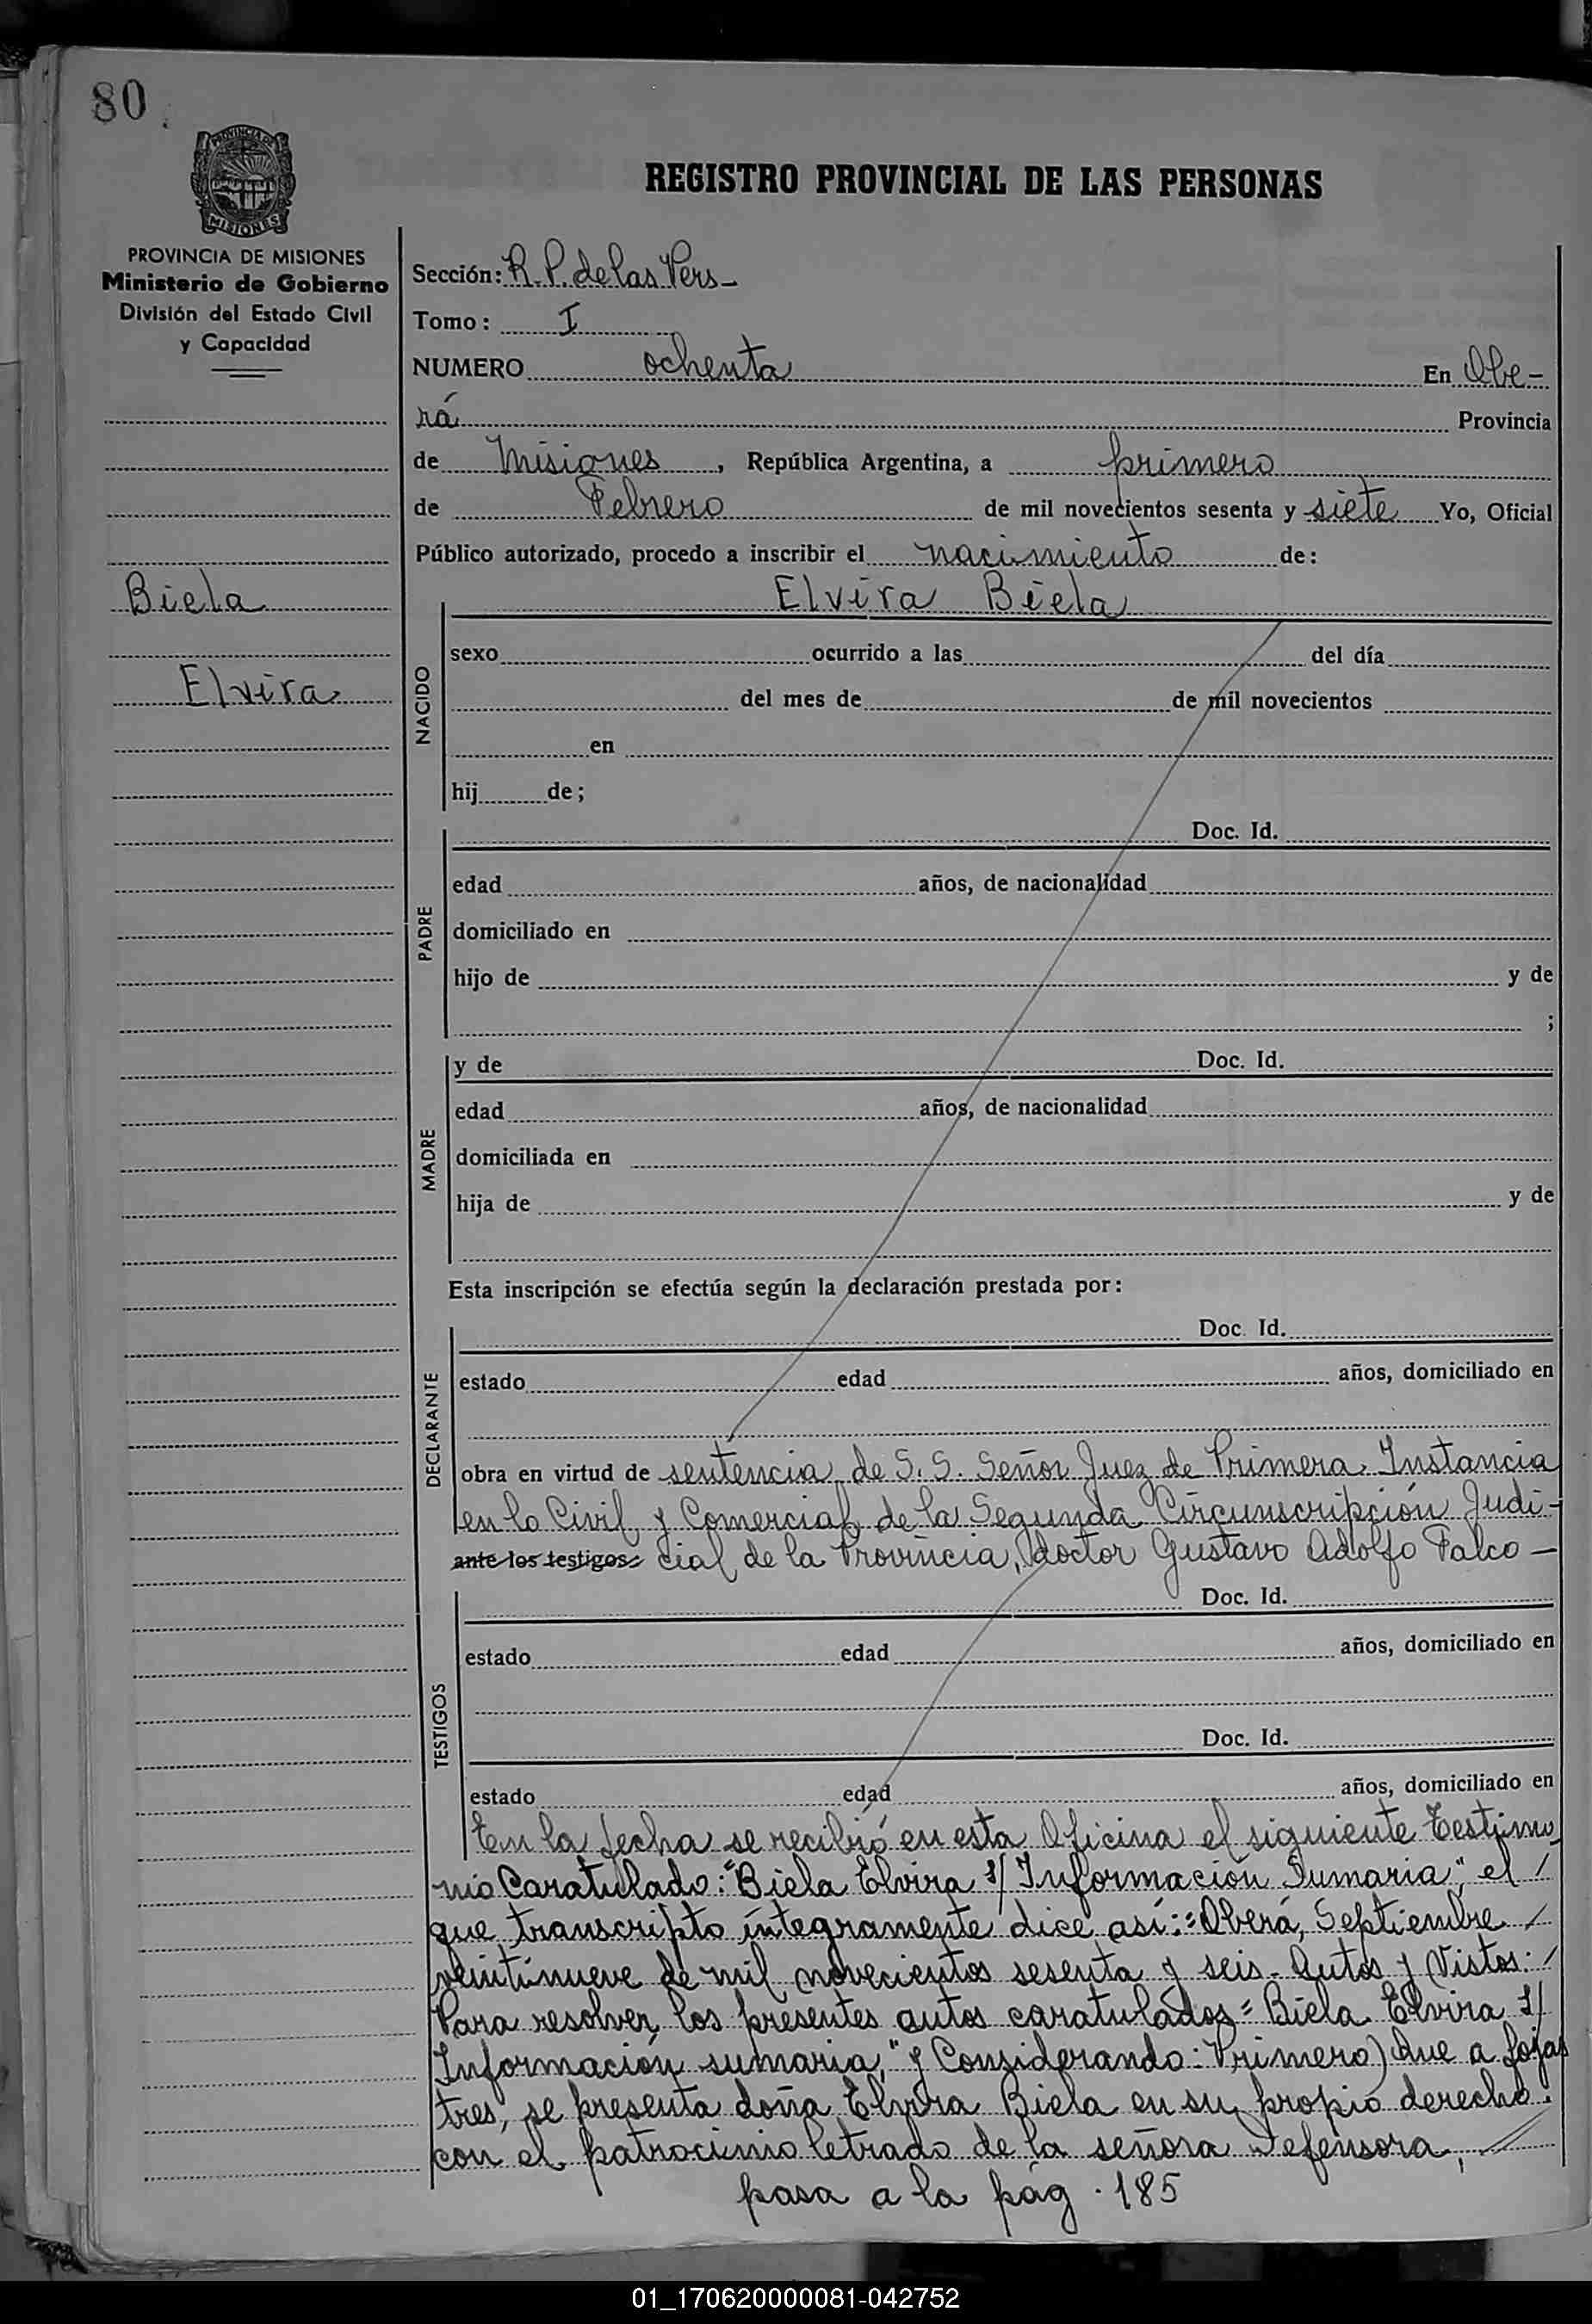 80
PROVINCIA DE
MISIONES
REGISTRO PROVINCIAL DE LAS PERSONAS
PROVINCIA DE MISIONES
Ministerio de Gobierno
División del Estado Civil
y Capacidad
Biela
Elvira
Sección: R. P. de las Pers-
Tomo: I
NUMERO ochenta En Obe-
rá Provincia
de Misiones, República Argentina, a primero
de Febrero de mil novecientos sesenta y siete Yo, Oficial
Público autorizado, procedo a inscribir el nacimiento de:
Elvira Biela
NACIDO
sexo ocurrido a las del día
del mes de de mil novecientos
en
hij de;
Doc. Id.
PADRE
edad años, de nacionalidad
domiciliado en
hijo de y de
;
y de Doc. Id.
MADRE
edad años, de nacionalidad
domiciliada en
hija de y de
Esta inscripción se efectúa según la declaración prestada por:
Doc. Id.
DECLARANTE
estado edad años, domiciliado en
obra en virtud de sentencia de S. S. Señor Juez de Primera Instancia
en lo Civil y Comercial de la Segunda Circunscripción Judi-
ante los testigos: cial de la Provincia, doctor Gustavo Adolfo Falco-
Doc. Id.
TESTIGOS
estado edad años, domiciliado en
Doc. Id.
estado edad años, domiciliado en
En la fecha se recibió en esta Oficina el siguiente Testimo
nio Caratulado: "Biela Elvira s/ Información Sumaria", el /
que transcripto íntegramente dice así: =Oberá, Septiembre /
veintinueve de mil novecientos sesenta y seis- Autos y Vistos: /
Para resolver los presentes autos caratulados= Biela Elvira s/
Información sumaria," y Considerando: Primero) Que a fojas
tres, se presenta doña Elvira Biela en su propio derecho.
con el patrocinio letrado de la señora Defensora,
pasa a la pág. 185
01_170620000081-042752